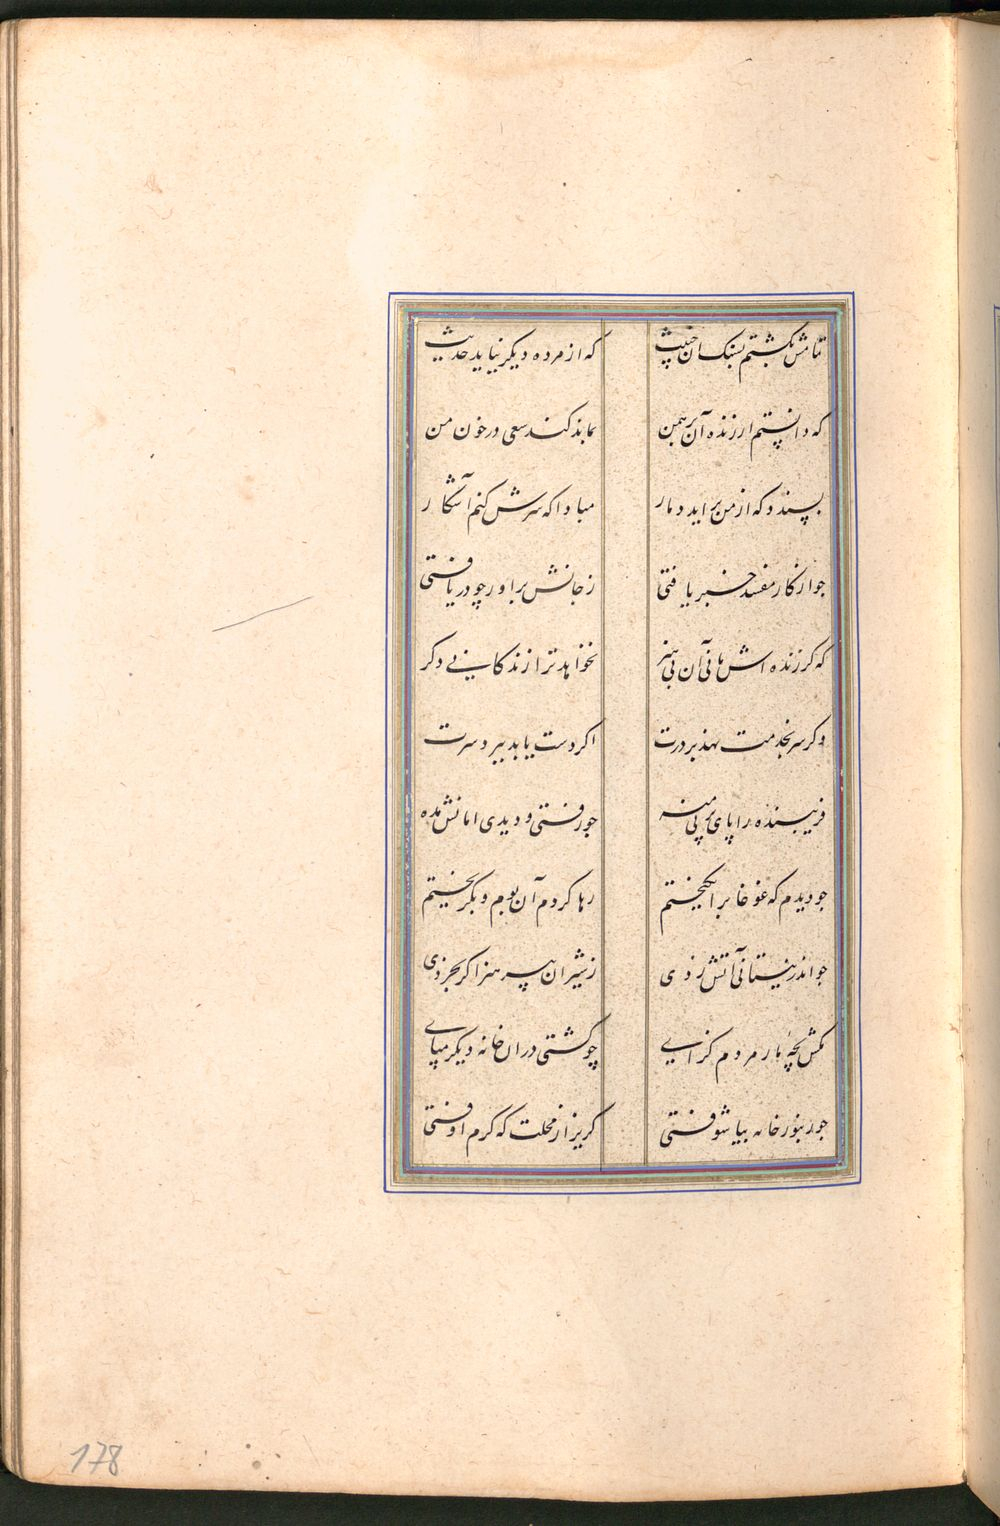 تمامش بکشتم بسنک آن خبیث که از مرده دیکر نیاید حدیث
که دانستم ار زنده آن برهمن بماند کند سعی در خون من
پسندد که از من براید دمار مبادا که سرش کنم آشکار
جو از کار مفسد خبر یافتی ز جانش براور چو دریافتی
که کر زنده اش مانی آن بی هنر نخواهد ترا زندکانی دکر
وکر سر بخدمت نهد بر درت اکر دست یابد ببرد سرت
فریبنده را پای بر پی منه جو رفتی و دیدی امانش مده
جو دیدم که غوغا برانکیختم رها کردم آن بوم و بکریختم
جو اندر نیستانی آتش زدی ز شیران بپرهیز اکر بخردی
مکش بچهٔ مار مردم کزای چو کشتی دران خانه دیکر مپای
جو زنبور خانه بیاشوفتی کریز از محلت که کرم اوفتی
178